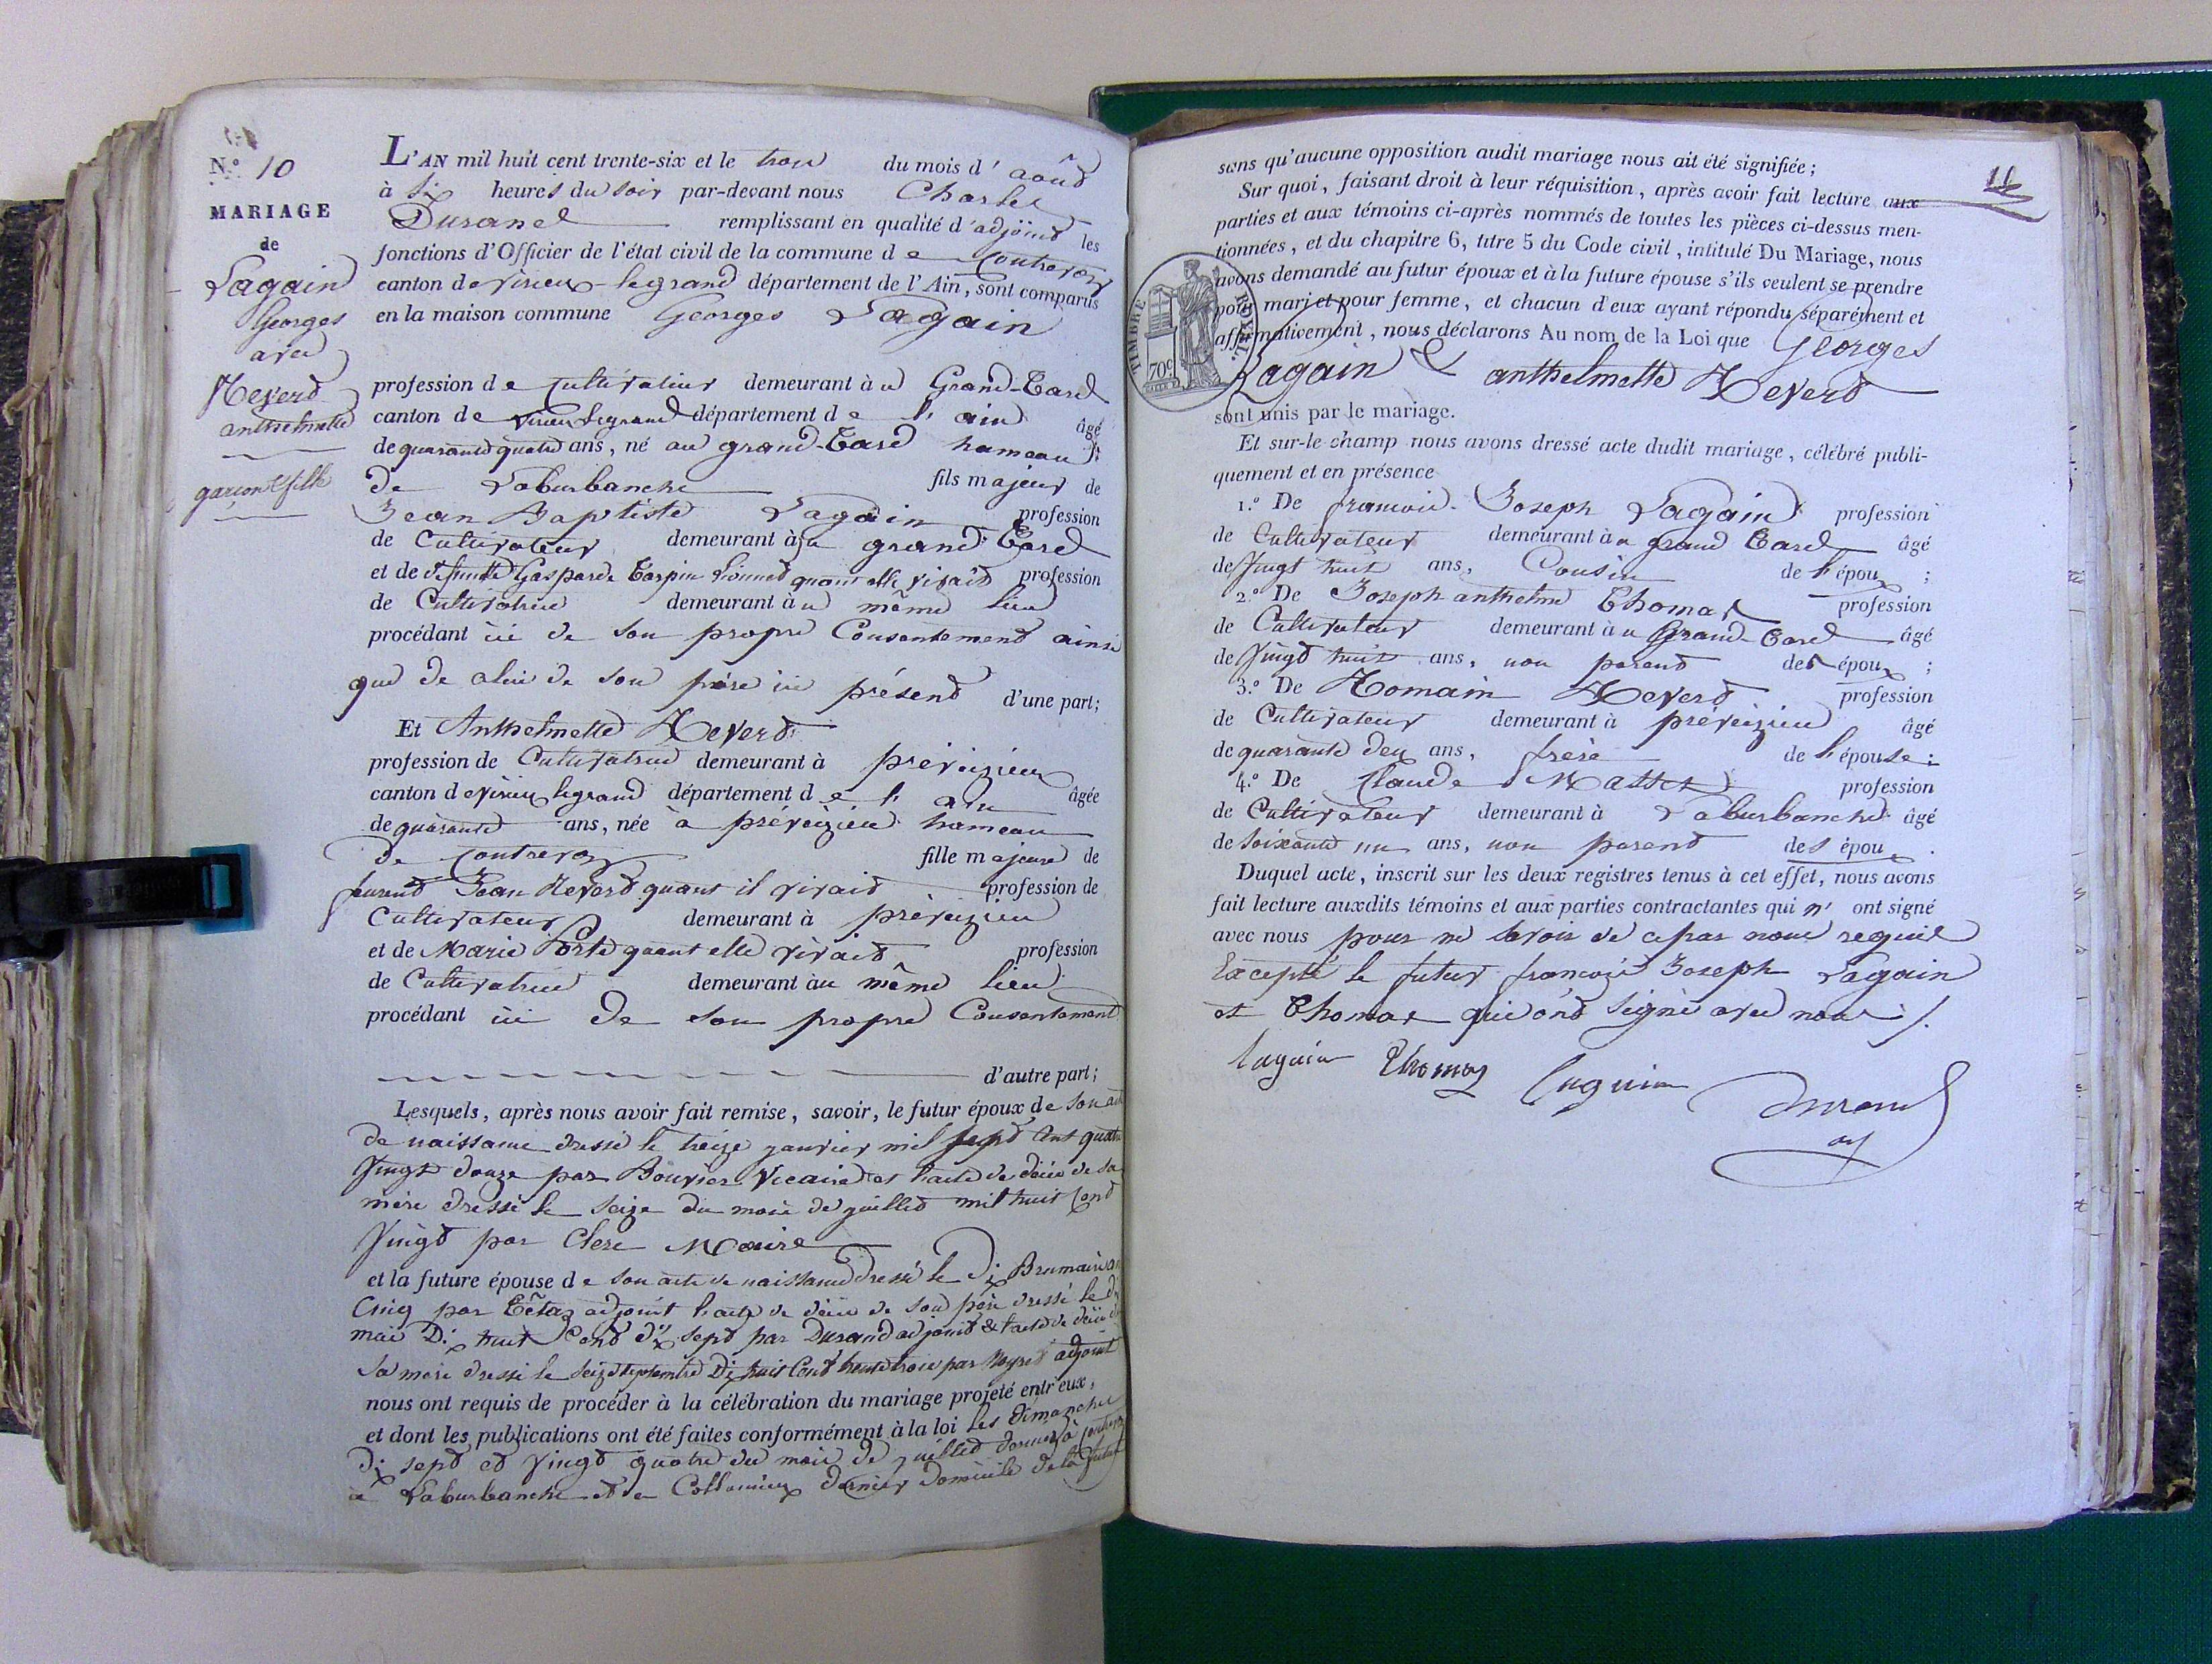 N.º 10
MARIAGE
de
Lagain
Georges
avec
Reverd
anthelmette
garçon & fille
L'AN mil huit cent trente-six et le trois du mois d'août
à six heures du soir par-devant nous Charles
Durand remplissant en qualité d'adjoint les
fonctions d'Officier de l'état civil de la commune de Contrevoz
canton de virieu-legrand département de l'Ain, sont comparus
en la maison commune Georges Lagain
profession de Cultivateur demeurant à u Grand-Tard
canton de virieu legrand département de l'ain âgé
de quarante quatre ans, né au grand-Tard hameau
de Laburbanche fils majeur de
Jean Baptiste Lagain profession
de Cultivateur demeurant à u grand Tard
et de defunte Gasparde Carpin quant elle vivait profession
de Cultivatrice demeurant à u même lieu
procédant ici de son propre Consentement ainsi
que de celui de son père ici présend d'une part;
Et Anthelmette Reverd
profession de Cultivatrice demeurant à préveizieu
canton de virieu legrand département de l'ain âgée
de quarante ans, née à préveizieu hameau
de Contrevoz fille majeure de
Jean Reverd quant il vivait profession de
Cultivateur demeurant à préveizieu
et de Marie Porte quant elle vivait profession
de Cultivatrice demeurant au même lieu
procédant ici de son propre Consentement
d'autre part;
Lesquels, après nous avoir fait remise, savoir, le futur époux de son acte
de naissance dressé le treize janvier mil sept cent quatre
vingt douze par Bouvier Vicaire et l'acte de décès de sa
mère dressé le seize du mois de juillet mil huit cend
vingt par Clerc Maire
et la future épouse de son acte de naissance dressé le dix Brumaire an
Cinq par Têtaz adjoint l'acte de décès de son père dressé le dix
mai Dix huit Cend dix sept par Durand adjoint & l'acte de décès de
sa mère dressé le seize septembre Dix huit Cend trente trois par adjoint
nous ont requis de procéder à la célébration du mariage projeté entr'eux,
et dont les publications ont été faites conformément à la loi les dimanches
dix sept et vingt quatre du mois de juillet dernier à Contrevoz
à Laburbanche et a Collomieu dernier domicile de la future
11
sans qu'aucune opposition audit mariage nous ait été signifiée;
Sur quoi, faisant droit à leur réquisition, après avoir fait lecture aux
parties et aux témoins ci-après nommés de toutes les pièces ci-dessus men-
tionnées, et du chapitre 6, titre 5 du Code civil, intitulé Du Mariage, nous
avons demandé au futur époux et à la future épouse s'ils veulent se prendre
pour mari et pour femme, et chacun d'eux ayant répondu séparément et
affirmativement, nous déclarons Au nom de la Loi que Georges
Lagain & anthelmette Reverd
TIMBRE ROYAL.
70c
sont unis par le mariage.
Et sur-le-champ nous avons dressé acte dudit mariage, célébré publi-
quement et en présence
1.º De francois Joseph Lagain profession
de Cultivateur demeurant à u grand Tard âgé
de vingt huit ans, Cousin de l'époux;
2.º De Joseph anthelme Thomas profession
de Cultivateur demeurant à u Grand Tard âgé
de vingt huit ans, non parend des époux;
3.º De Romain Reverd profession
de Cultivateur demeurant à préveizieu âgé
de quarante deux ans, frère de l'épouse;
4.º De Claude profession
de Cultivateur demeurant à Laburbanche âgé
de soixante un ans, non parend des époux.
Duquel acte, inscrit sur les deux registres tenus à cet effet, nous avons
fait lecture auxdits témoins et aux parties contractantes qui n'ont signé
avec nous pour ne savoir de ce par nous requis
Excepté le futur françois Joseph Lagain
et Thomas qui ond signé avec nous
lagain Thomas lagain Durand